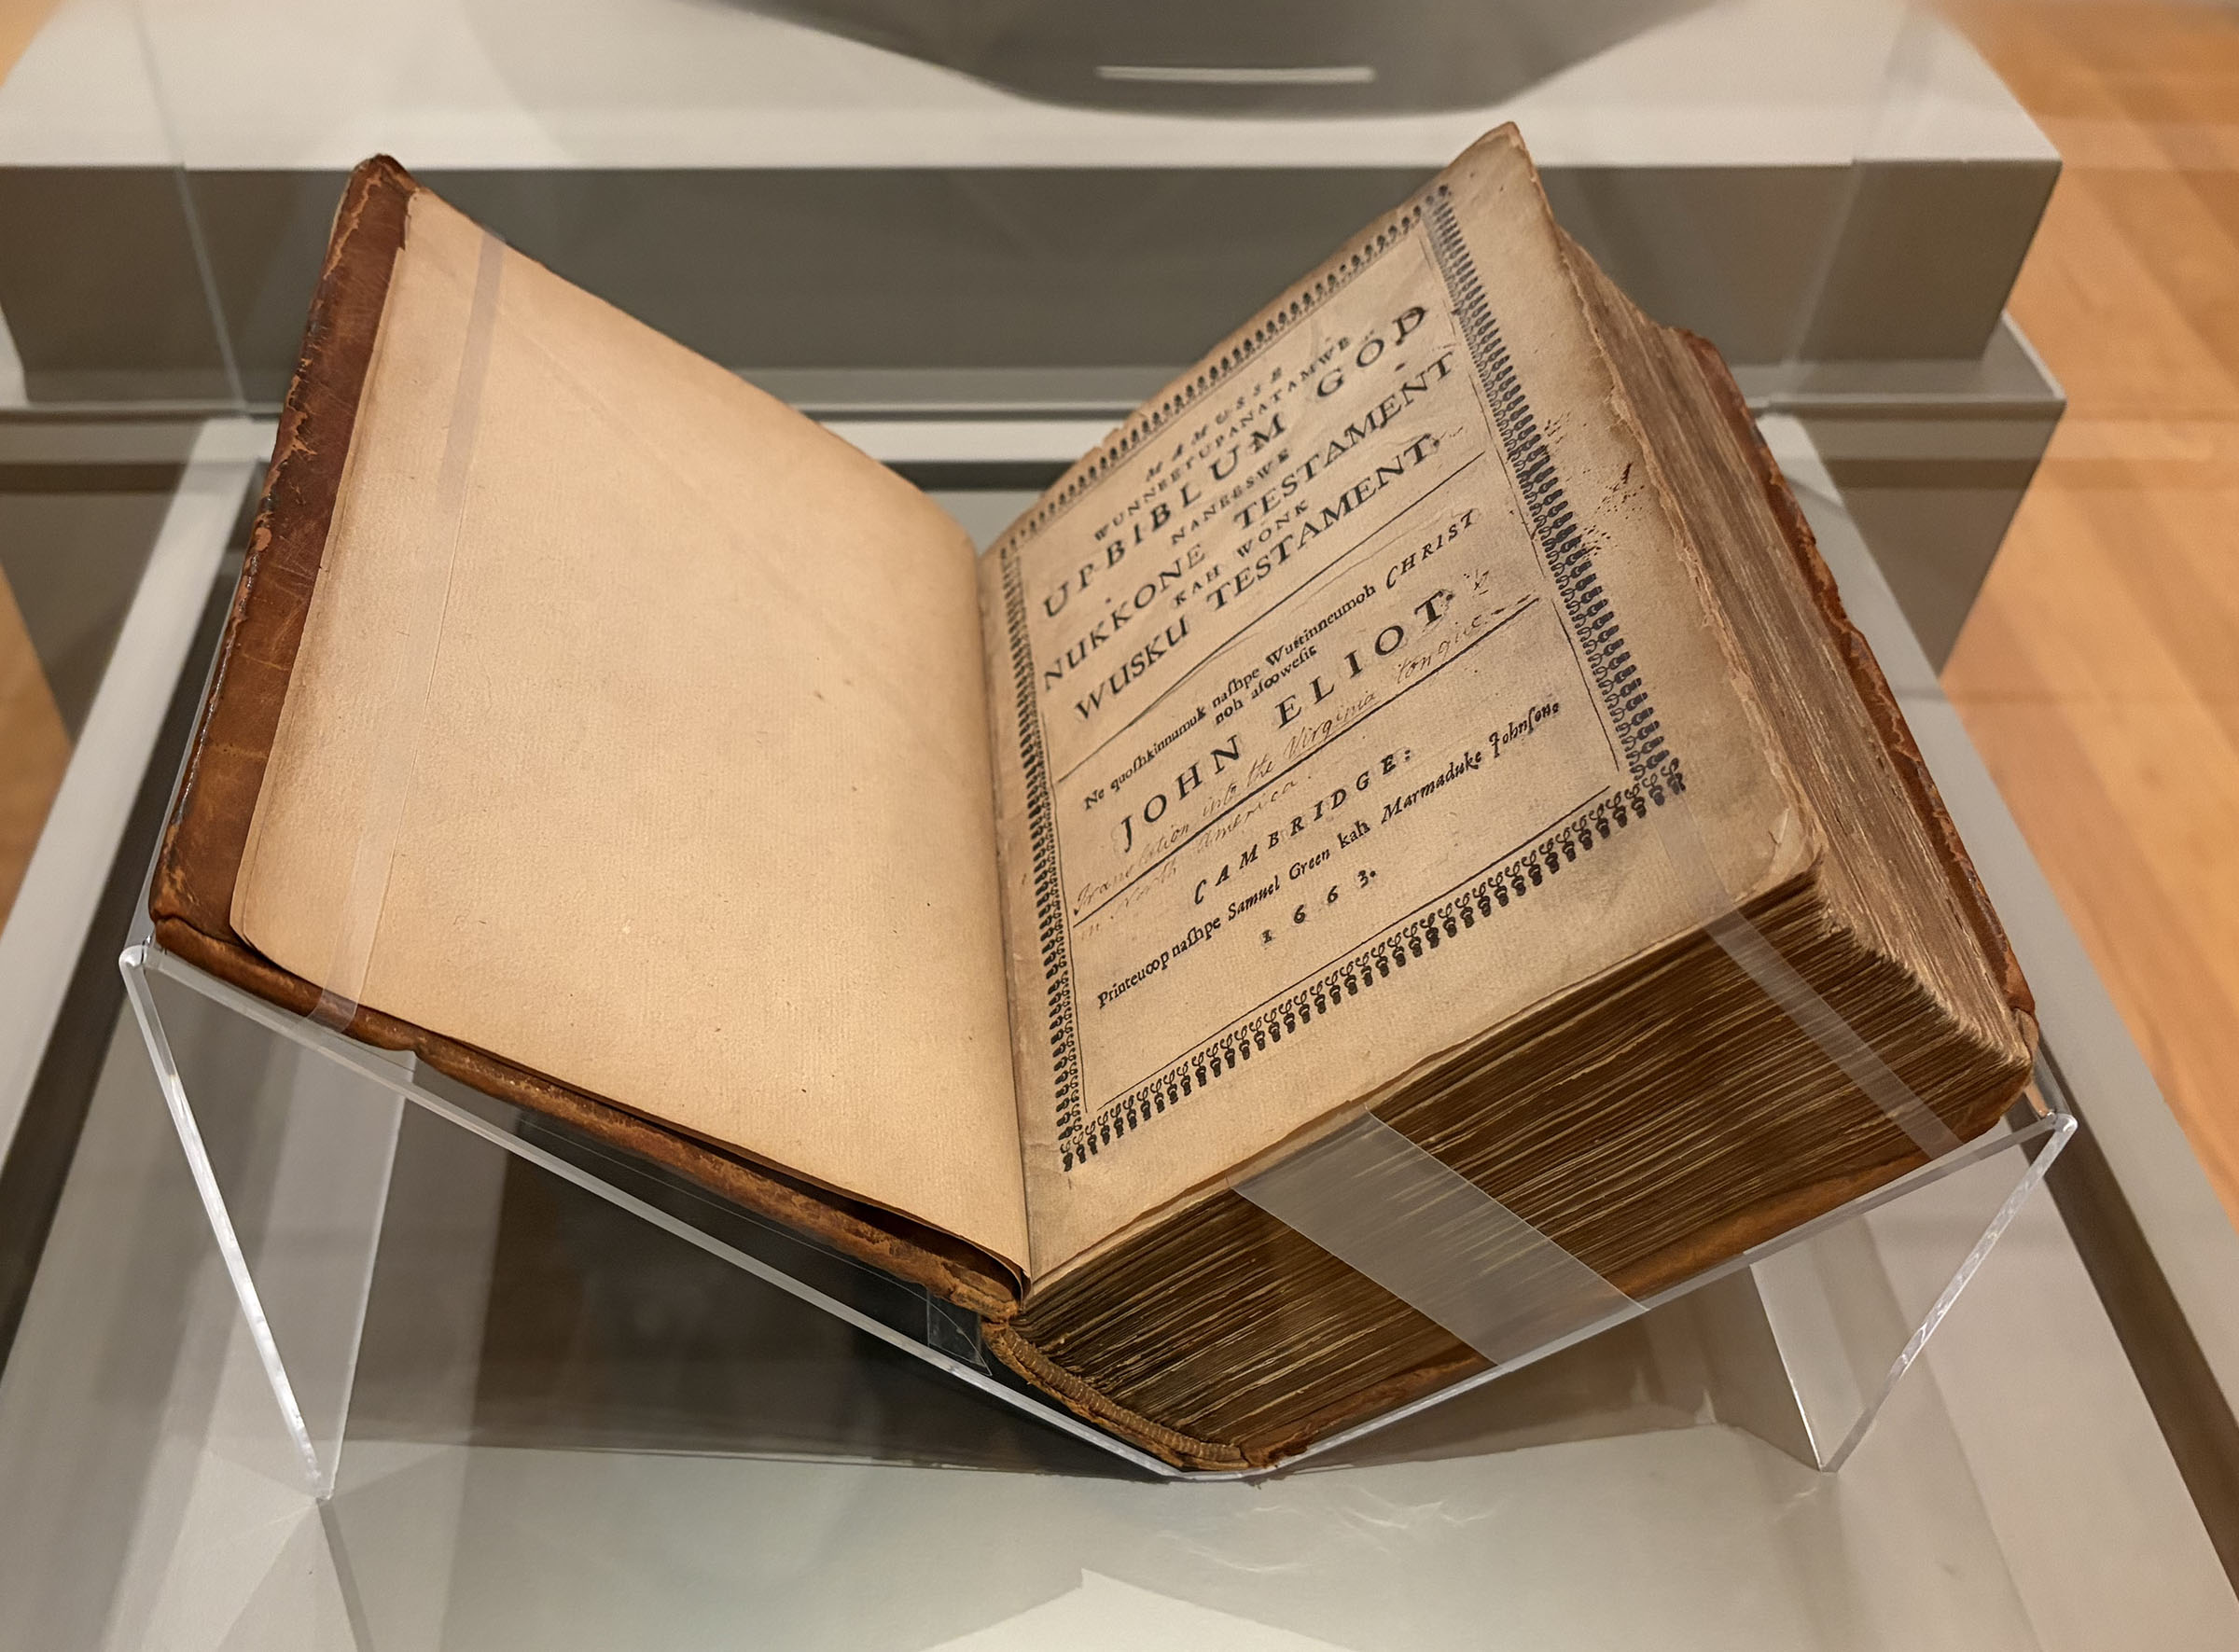 MAMUSSE
WUNNEETUPANATAMWE
UP-BIBLUM GOD
NANEESWE
NUKKONE TESTAMENT
KAH WONK
WUSKU TESTAMENT.
Ne quoſhkinnumuk naſhpe Wuttinneumoh CHRIST
noh aſꝏweſit
JOHN ELIOT.
Translation into the Virginia tongue
in North America.
CAMBRIDGE:
Printeuꝏp naſhpe Samuel Green kah Marmaduke Johnſon.
1663.